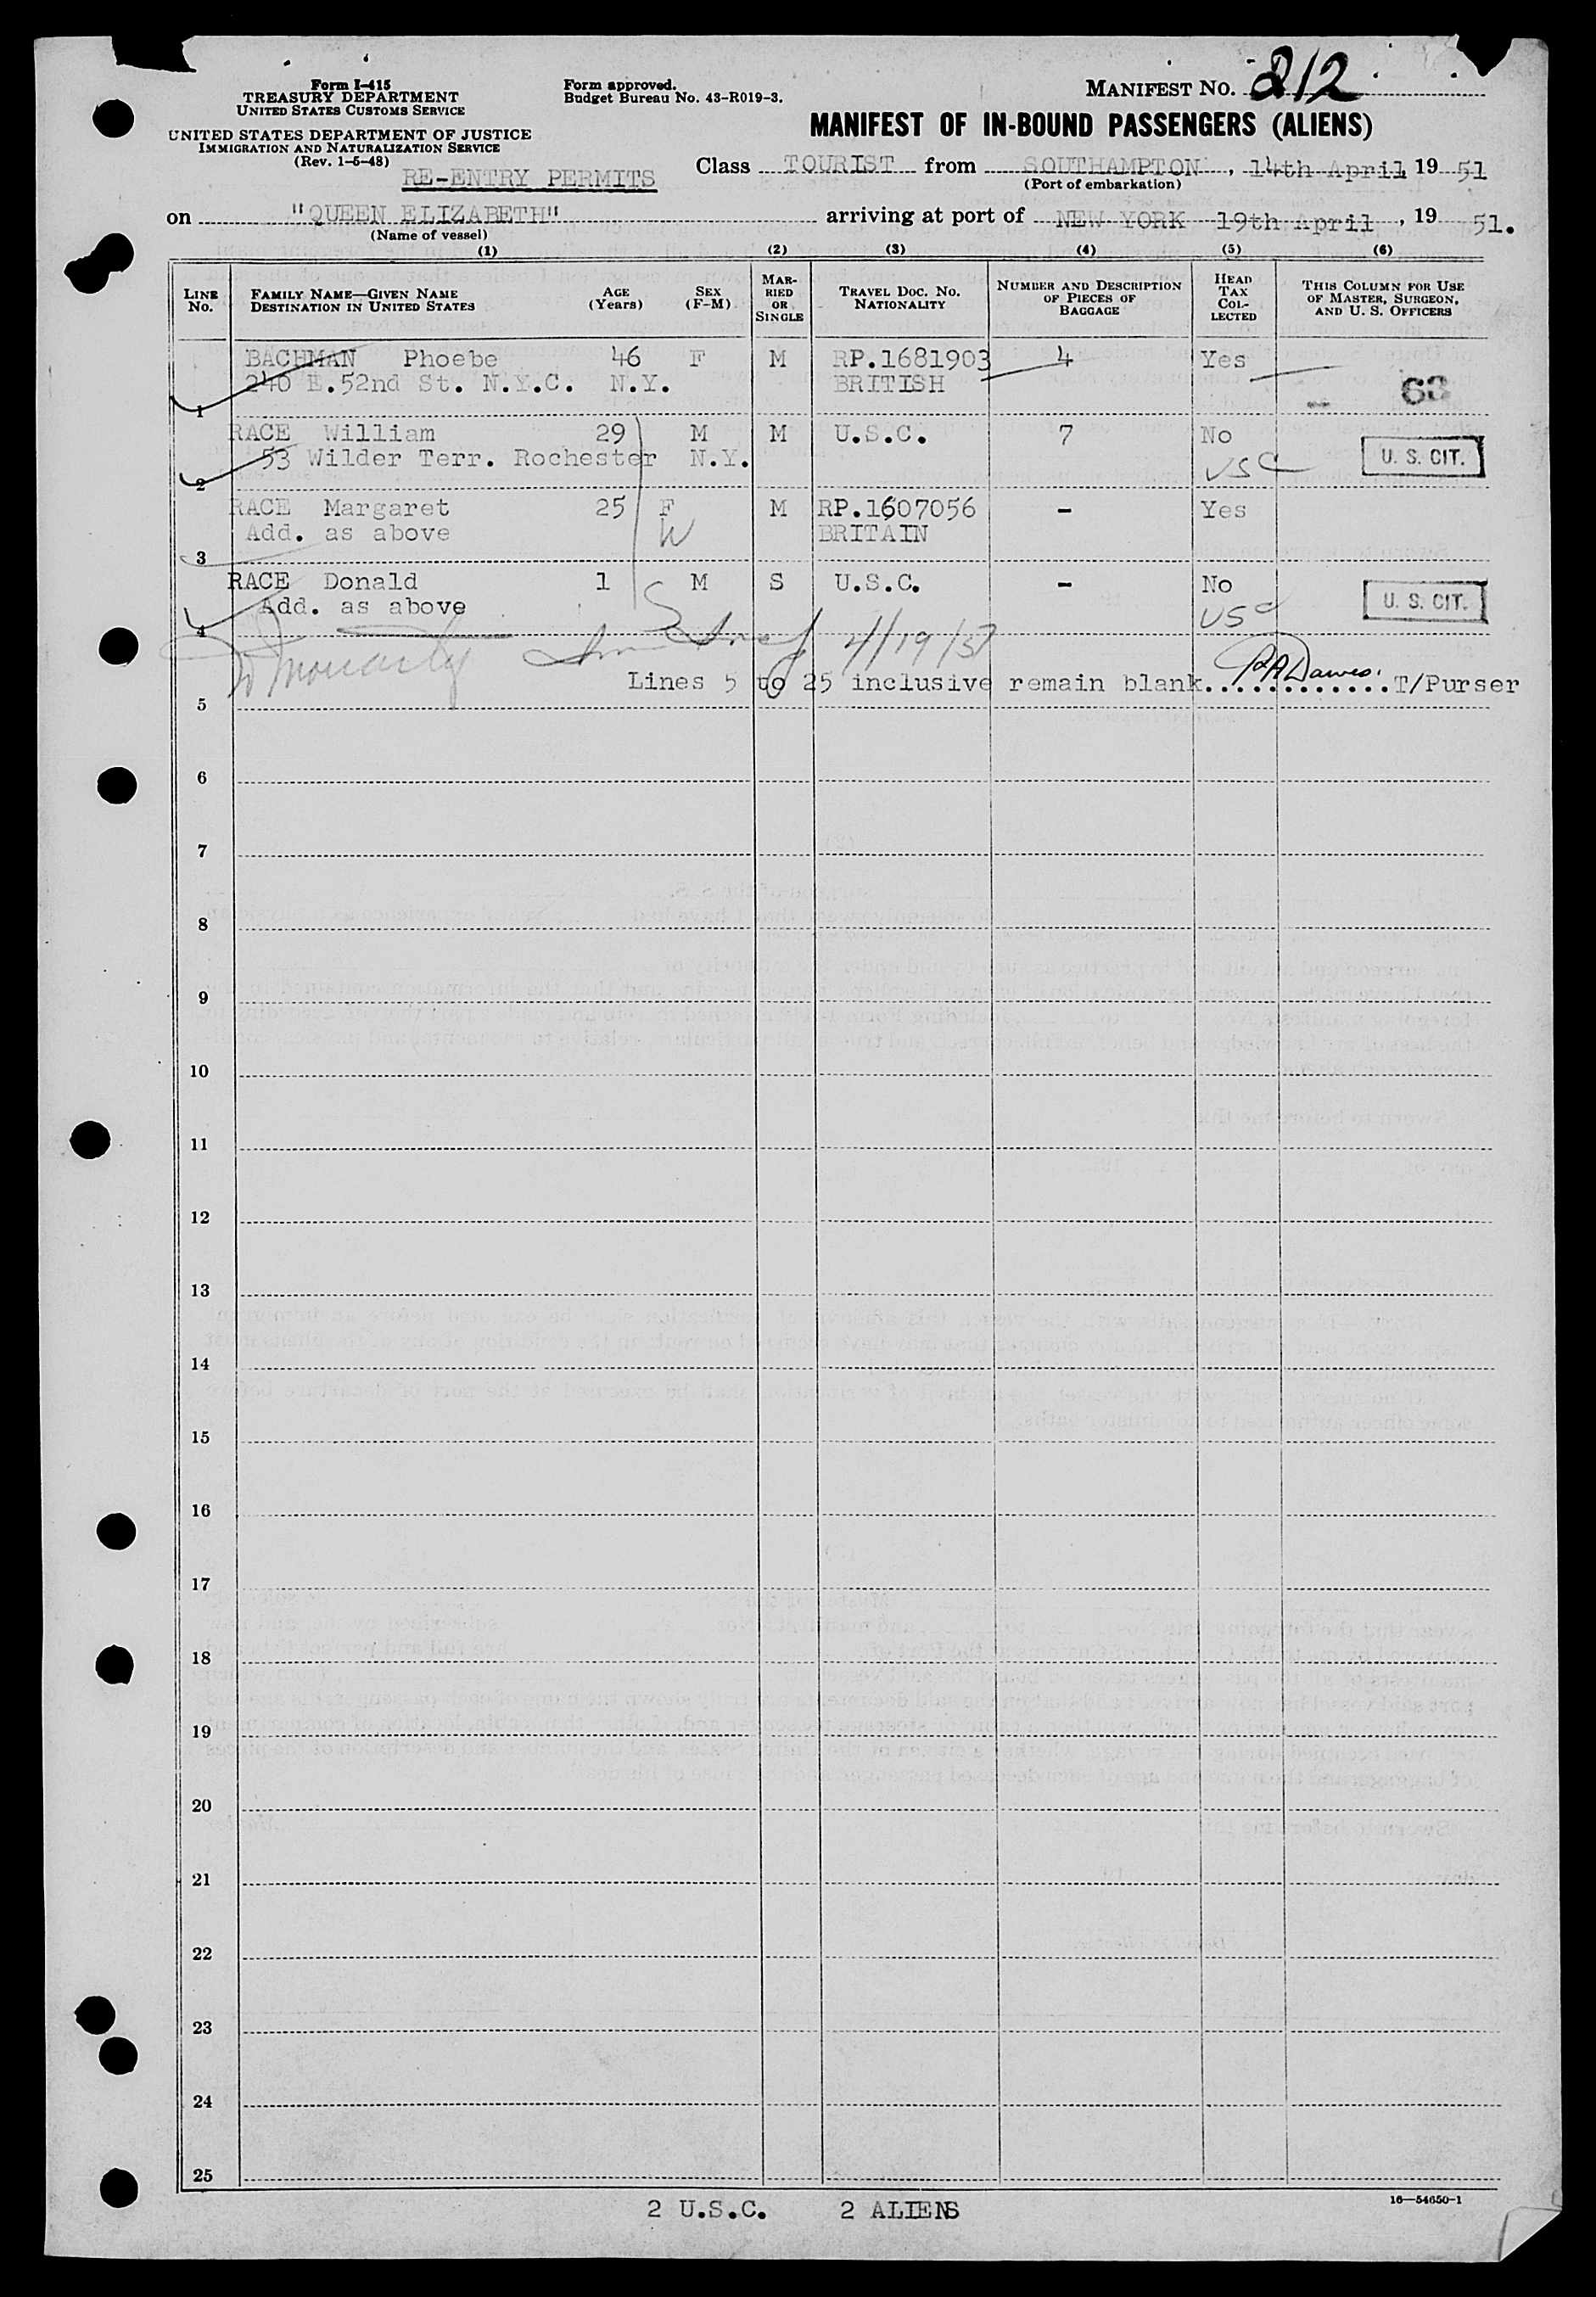 Form I-415
TREASURY DEPARTMENT
UNITED STATES CUSTOMS SERVICE
UNITED STATES DEPARTMENT OF JUSTICE
IMMIGRATION AND NATURALIZATION SERVICE
(Rev. 1-5-48)
RE-ENTRY PERMITS
Form approved.
Budget Bureau No. 43-R019-3.
MANIFEST NO. 212
MANIFEST OF IN-BOUND PASSENGERS (ALIENS)
Class TOURIST from SOUTHAMPTON, 14th April, 19 51
(Port of embarkation)
on "QUEEN ELIZABETH" arriving at port of NEW YORK 19th April, 19 51.
(Name of vessel)
(1) (2) (3) (4) (5) (6)
LINE No. FAMILY NAME—GIVEN NAME DESTINATION IN UNITED STATES AGE (Years) SEX (F-M) MARRIED OR SINGLE TRAVEL DOC. NO. NATIONALITY NUMBER AND DESCRIPTION OF PIECES OF BAGGAGE HEAD TAX COLLECTED THIS COLUMN FOR USE OF MASTER, SURGEON, AND U. S. OFFICERS
BACHMAN Phoebe 46 F M RP.1681903 4 Yes
240 E.52nd St. N.Y.C. N.Y. BRITISH
1
RACE William 29 M M U.S.C. 7 No
53 Wilder Terr. Rochester N.Y. USC U. S. CIT.
2
RACE Margaret 25 F M RP.1607056 - Yes
Add. as above W BRITAIN
3
RACE Donald 1 M S U.S.C. - No
Add. as above USC U. S. CIT.
4
4/19/51
Lines 5 to 25 inclusive remain blank............T/Purser
RADawes.
5
6
7
8
9
10
11
12
13
14
15
16
17
18
19
20
21
22
23
24
25
2 U.S.C. 2 ALIENS
16—54650-1